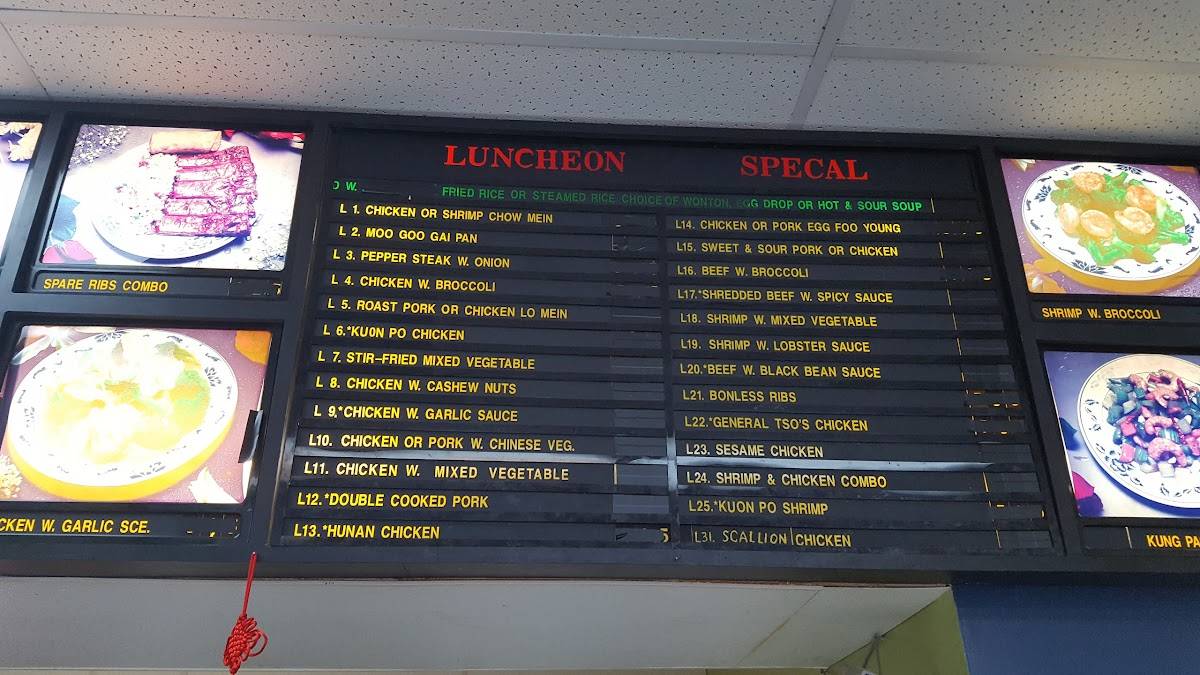 LUNCHEON SPECAL
W. FRIED RICE OR STEAMED RICE CHOICE OF WONTON, EGG DROP OR HOT & SOUR SOUP
L 1. CHICKEN OR SHRIMP CHOW MEIN
L 2. MOO GOO GAI PAN
L 3. PEPPER STEAK W. ONION
L 4. CHICKEN W. BROCCOLI
L 5. ROAST PORK OR CHICKEN LO MEIN
L 6.*KUON PO CHICKEN
L 7. STIR-FRIED MIXED VEGETABLE
L 8. CHICKEN W. CASHEW NUTS
L 9.*CHICKEN W. GARLIC SAUCE
L10. CHICKEN OR PORK W. CHINESE VEG.
L11. CHICKEN W. MIXED VEGETABLE
L12.*DOUBLE COOKED PORK
L13.*HUNAN CHICKEN
L14. CHICKEN OR PORK EGG FOO YOUNG
L15. SWEET & SOUR PORK OR CHICKEN
L16. BEEF W. BROCCOLI
L17.*SHREDDED BEEF W. SPICY SAUCE
L18. SHRIMP W. MIXED VEGETABLE
L19. SHRIMP W. LOBSTER SAUCE
L20.*BEEF W. BLACK BEAN SAUCE
L21. BONLESS RIBS
L22.*GENERAL TSO'S CHICKEN
L23. SESAME CHICKEN
L24. SHRIMP & CHICKEN COMBO
L25.*KUON PO SHRIMP
L31. SCALLION CHICKEN
SPARE RIBS COMBO
CKEN W. GARLIC SCE.
SHRIMP W. BROCCOLI
KUNG PA